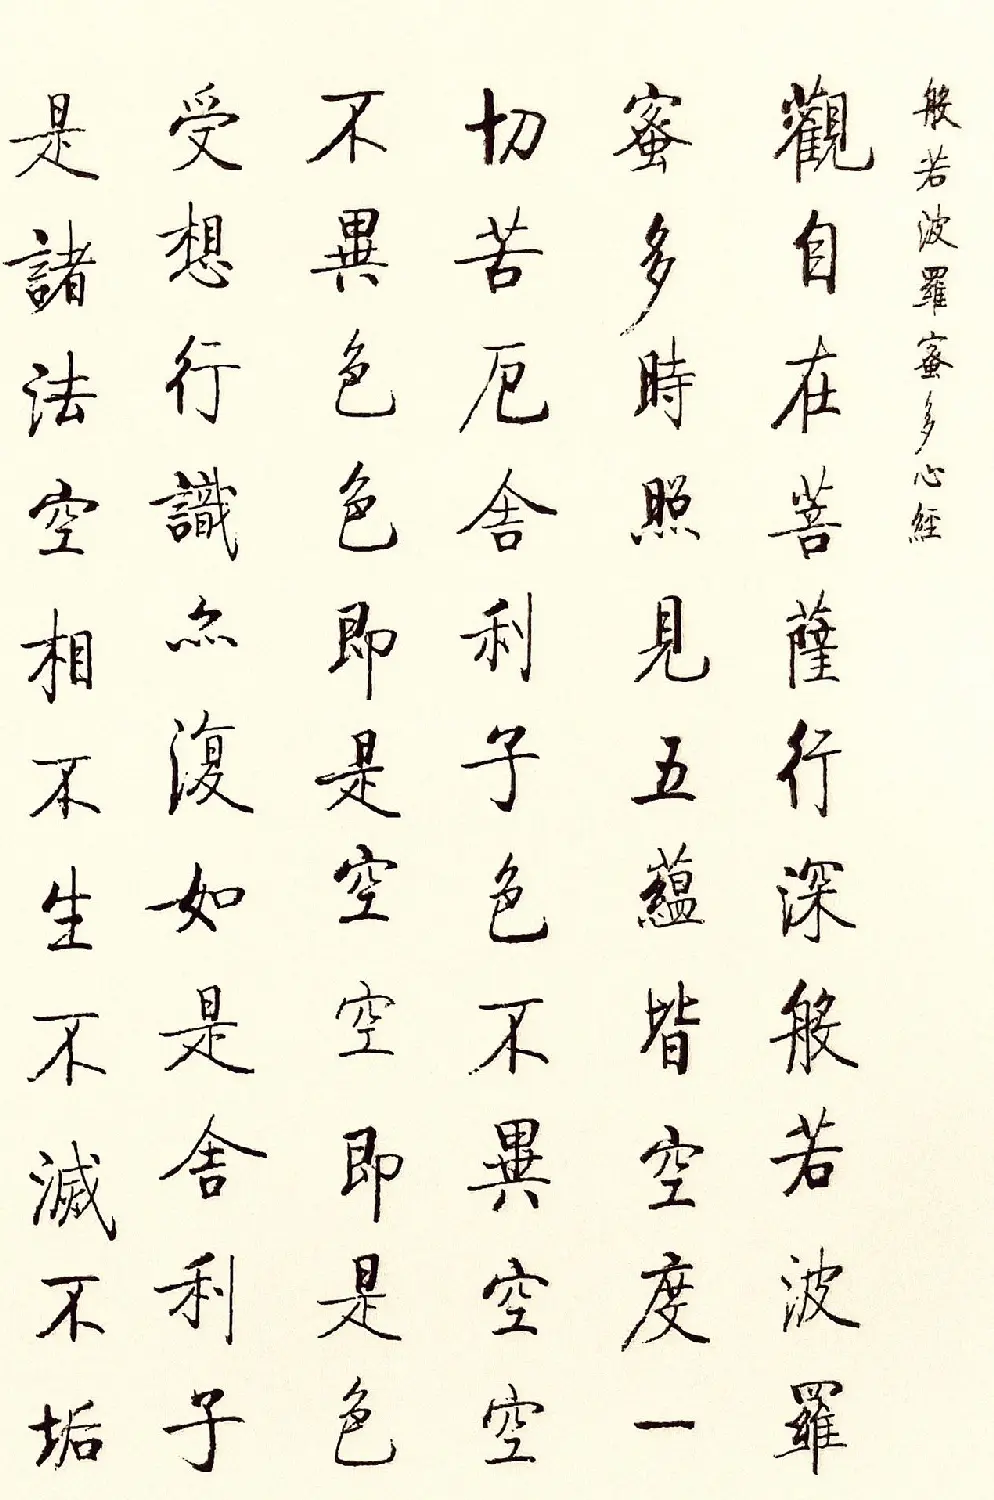 般若波羅蜜多心經
觀自在菩薩行深般若波羅
蜜多時照見五蘊皆空度一
切苦厄舍利子色不異空空
不異色色即是空空即是色
受想行識亦復如是舍利子
是諸法空相不生不滅不垢